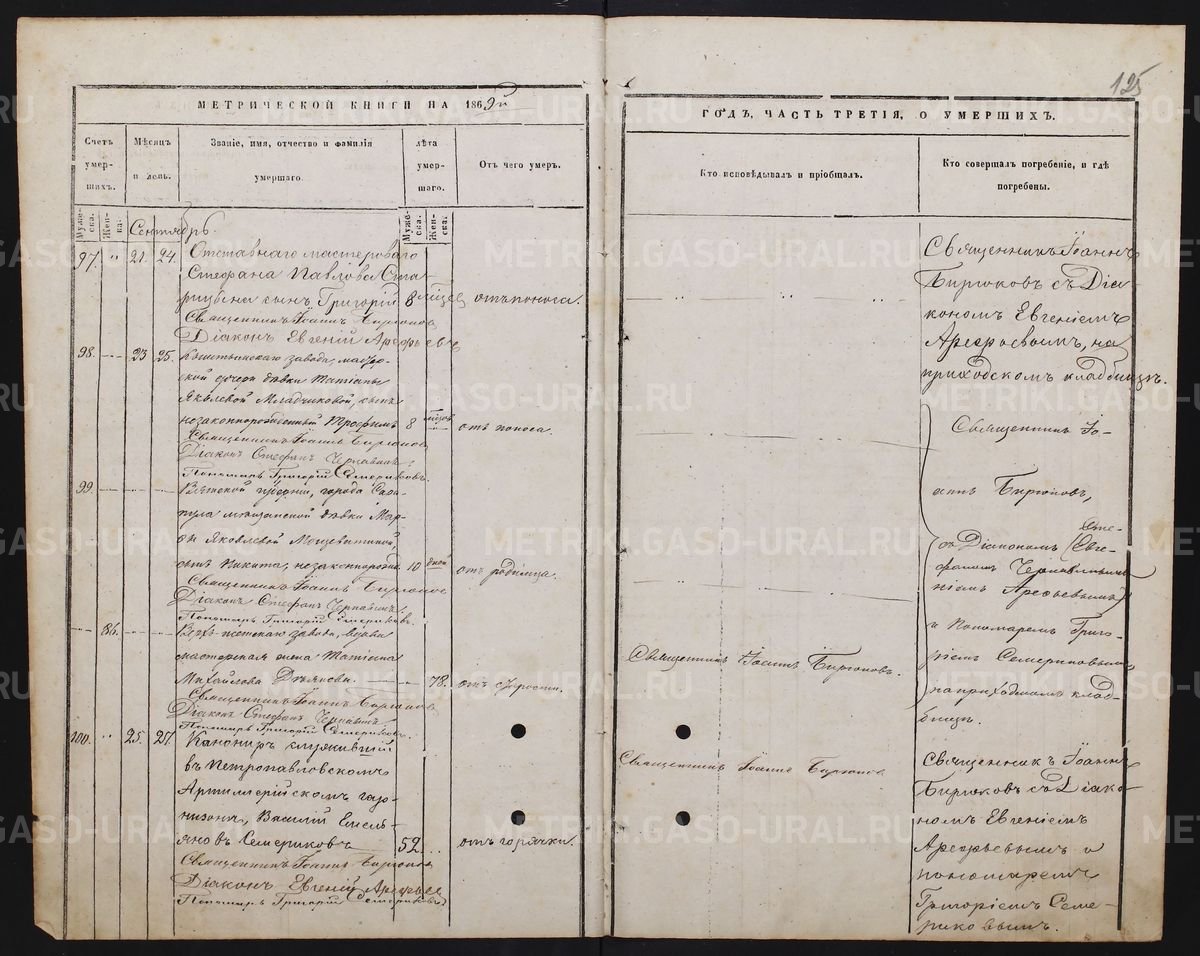 125
МЕТРИЧЕСКОЙ КНИГИ НА 1869й
ГОДЪ, ЧАСТЬ ТРЕТІЯ, О УМЕРШИХЪ.
Счетъ умер-шихъ.
Мѣсяцъ и день.
Званіе, имя, отчество и фамилія умершаго.
лѣта умер-шаго.
Отъ чего умеръ.
Кто исповѣдывалъ и пріобщалъ.
Кто совершалъ погребеніе, и гдѣ погребены.
Муже-ска.
Жен-ка.
Сентябрь.
Муже-ска.
Жен-ска.
97. " 21. 24.
Отставнаго мастероваго
Стефана Павлова
сынъ Григорій 8 отъ поноса.
Священникъ Іоаннъ Бирюковъ
Діаконъ Евгеній Арефьевъ
Священникъ Іоаннъ
Бирюковъ съ Діа-
кономъ Евгеніемъ
Арефьевымъ, на
приходскомъ кладбищѣ.
98. 23 25.
Кыштымскаго завода, мастер-
ской дочери дѣвки Татіаны
Яковлевой Младчиковой, сынъ
незаконнорожденный Трофимъ 8 отъ поноса.
Священникъ Іоаннъ Бирюковъ
Діаконъ Стефанъ
Пономарь Григорій Семериковъ.
Священникъ Іо-
аннъ Бирюковъ,
съ Діакономъ Сте-
фаномъ (Евге-
ніемъ Арефьевымъ)
и Пономаремъ Григо-
ріемъ Семериковымъ
на приходскомъ клад-
бищѣ.
99.
Вятской губерніи, города Сара-
пула мѣщанской дѣвки Мар-
ѳы Яковлевой
сынъ Никита, незаконнорожд. 10 дней отъ родимца.
Священникъ Іоаннъ Бирюковъ
Діаконъ Стефанъ
Пономарь Григорій Семериковъ.
86.
завода, вдова
мастерская жена Татіана
Михайлова 78. отъ старости.
Священникъ Іоаннъ Бирюковъ.
Священникъ Іоаннъ Бирюковъ
Діаконъ Стефанъ
Пономарь Григорій Семериковъ.
100. " 25. 27.
Канониръ служившій
въ Петропавловскомъ
Артиллерійскомъ гар-
низонѣ, Василій Емель-
яновъ Семериковъ 52. отъ горячки.
Священникъ Іоаннъ Бирюковъ
Діаконъ Евгеній Арефьевъ
Пономарь Григорій Семериковъ
Священникъ Іоаннъ Бирюковъ
Священникъ Іоаннъ
Бирюковъ съ Діако-
номъ Евгеніемъ
Арефьевымъ и
пономаремъ
Григоріемъ Семе-
риковымъ.
METRIKI.GASO-URAL.RU